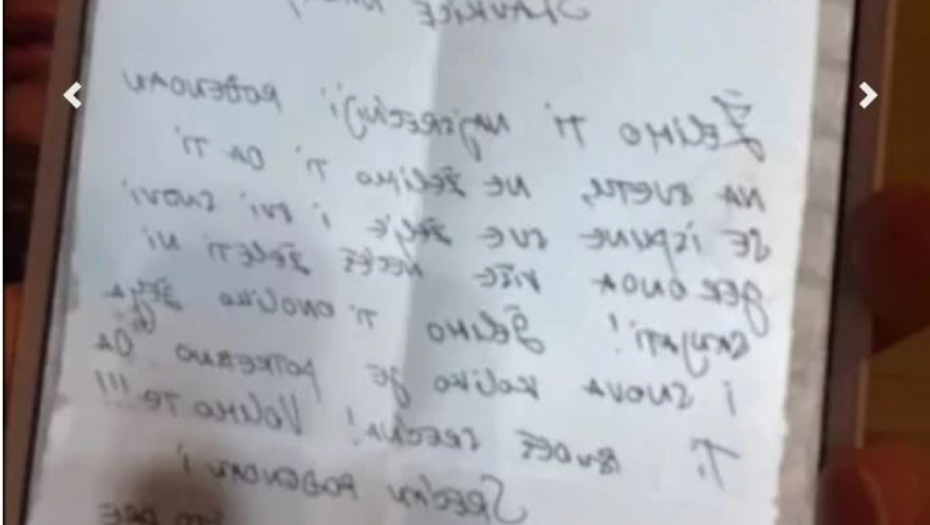 SLAVKICE
Želimo ti najsrećniji rođendan
na svetu, ne želimo ti da ti
se ispune sve želje i svi snovi
jer onda više nećeš želeti ni
sanjati! Želimo ti onoliko želja
i snova koliko je potrebno da
ti budeš srećna! Volimo te!!!
Srećan rođendan!